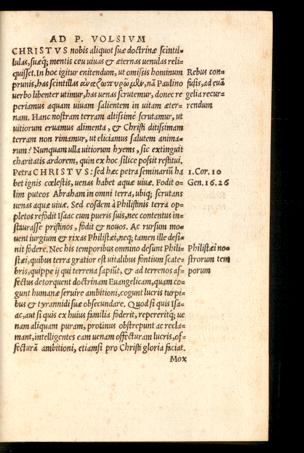 AD P. VOLSIVM
CHRISTVS nobis aliquot suæ doctrinæ scintil-
lulas, suæq; mentis ceu uiuas & æternas uenulas reli-
quisset. In hoc igitur enitendum, ut omissis hominum
prunis, has scintillas ἀναζωπυρῶμεν, nā Paulino
uerbo libenter utimur, has uenas scrutemur, donec re
periamus aquam uiuam salientem in uitam æter-
nam. Hanc nostram terram altißime scrutamur, ut
uitiorum eruamus alimenta, & Christi ditißimam
terram non rimamur, ut eliciamus salutem anima-
rum? Nunquam ulla uitiorum hyems, sic extinguit
charitatis ardorem, quin ex hoc silice poßit restitui.
Petra CHRISTVS: sed hæc petra seminariū ha
bet ignis cœlestis, uenas habet aquæ uiuæ. Fodit o-
lim puteos Abraham in omni terra, ubiq; scrutans
uenas aquæ uiuæ. Sed eosdem à Philistinis terra op-
pletos refodit Isaac cum pueris suis, nec contentus in-
staurasse pristinos, fodit & nouos. Ac rursum mo-
uent iurgium & rixas Philistæi, neq; tamen ille desi-
nit fodere. Nec his temporibus omnino desunt Phili-
stæi, quibus terra gratior est uitalibus fontium scate-
bris, quippe ij qui terrena sapiūt, & ad terrenos af-
fectus detorquent doctrinam Euangelicam, quam co-
gunt humanæ seruire ambitioni, cogunt lucris turpi-
bus & tyrannidi suæ obsecundare. Quod si quis Isa-
ac, aut si quis ex huius familia foderit, repereritq; ue
nam aliquam puram, protinus obstrepunt ac recla-
mant, intelligentes eam uenam offecturam lucris, of-
fecturā ambitioni, etiamsi pro Christi gloria faciat.
Mox
Rebus con-
fusis, ad euā
gelia recur-
rendum
1. Cor. 10
Gen. 16. 26
Philistæi no
strorum tem
porum